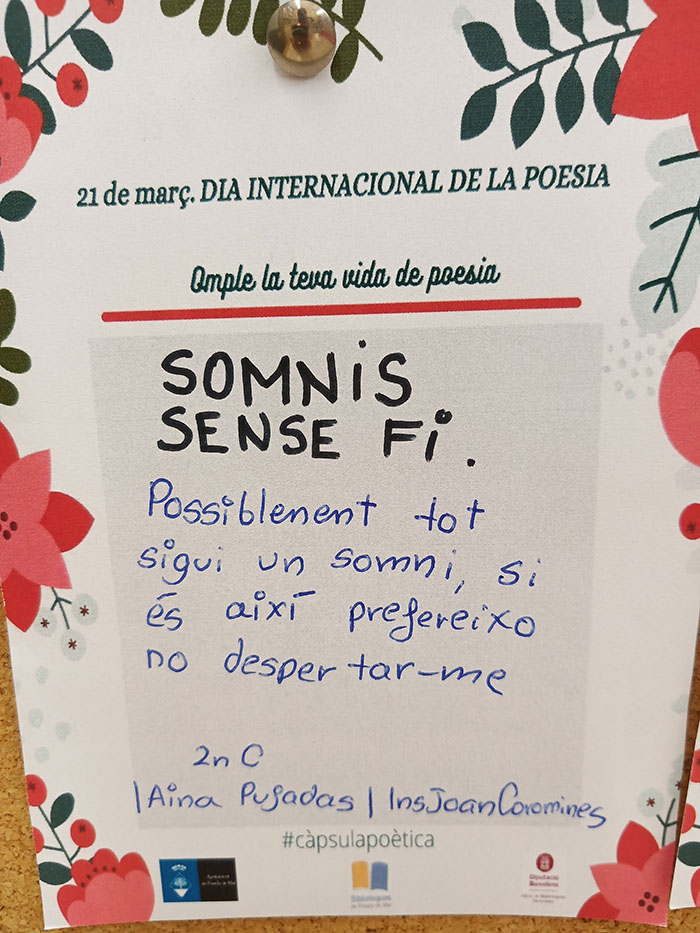 21 de març. DIA INTERNACIONAL DE LA POESIA
Omple la teva vida de poesia
SOMNIS
SENSE Fi.
Possiblenent tot
sigui un somni, si
és així prefereixo
no despertar-me
2n C
|Aina Pujadas | InsJoanCoromines
#càpsulapoètica
Ajuntament
Biblioteques
Diputació
Barcelona